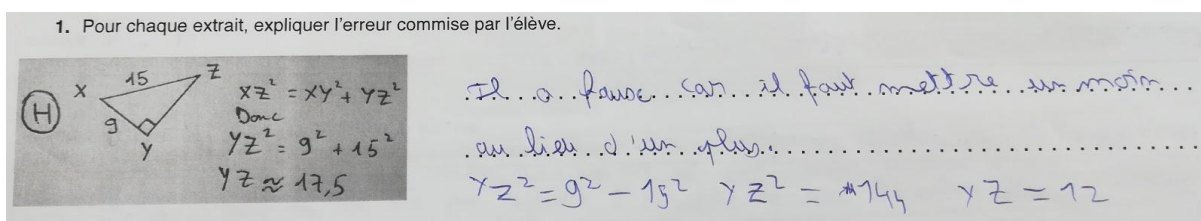 1. Pour chaque extrait, expliquer l'erreur commise par l'élève.
H
X 15 Z
9
Y
XZ² = XY² + YZ²
Donc
YZ² = 9² + 15²
YZ ≈ 17,5
Il a fause car il faut mettre un moin
au lieu d'un plus.
YZ² = 9² - 15² YZ² = 144 YZ = 12